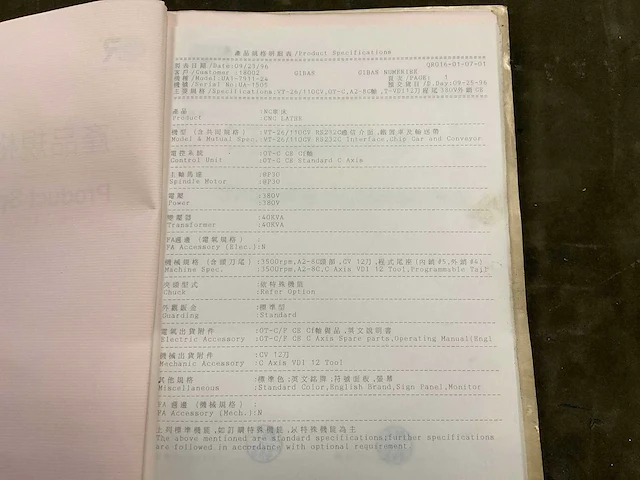 產品規格明細表/Product Specifications
報告日期/Date:09/23/96 QR016-01-07-01
客戶/Customer :18002 GIBAS GIBAS NUMERIEK
機種/Model:UA1-7911-24 頁次/PAGE: 1
機號/Serial No:UA-1505 預交貨日/P.Day:09-25-96
主要規格/Specifications:VT-26/110CV,OT-C,A2-8C軸,T-VDI12刀 程尾 380V外銷 CE
產品 :NC車床
Product :CNC LATHE
機型 (含共同規格) :VT-26/110CV RS232C通信介面,鐵屑車及輸送帶
Model & Mutual Spec.:VT-26/110CV RS232C Interface,Chip Car and Conveyor
電控系統 :OT-C CE Cf軸
Control Unit :OT-C CE Standard C Axis
主軸馬達 :@P30
Spindle Motor :@P30
電壓 :380V
Power :380V
變壓器 :40KVA
Transformer :40KVA
FA週邊 (電氣規格) :
FA Accessory (Elec.):N
機械規格 (含頭刀尾) :3500rpm,A2-8C頭部,CV 12刀,程式尾座(內銷#5,外銷#4)
Machine Spec. :3500rpm,A2-8C,C Axis VDI 12 Tool,Programmable Tail
夾頭型式 :依特殊機能
Chuck :Refer Option
外觀鈑金 :標準型
Guarding :Standard
電氣出貨附件 :OT-C/F CE Cf軸備品,英文說明書
Electric Accessory :OT-C/F CE C Axis Spare parts,Operating Manual(Engl
機械出貨附件 :CV 12刀
Mechanic Accessory :C Axis VDI 12 Tool
其他規格 :標準色;英文銘牌;符號面板,螢幕
Miscellaneous :Standard Color,English Brand,Sign Panel,Monitor
FA週邊 (機械規格) :
FA Accessory (Mech.):N
上列標準機能,如訂購特殊機能,以特殊機能為主
The above mentioned are standard specifications;further specifications
are followed in accordance with optional requirement.